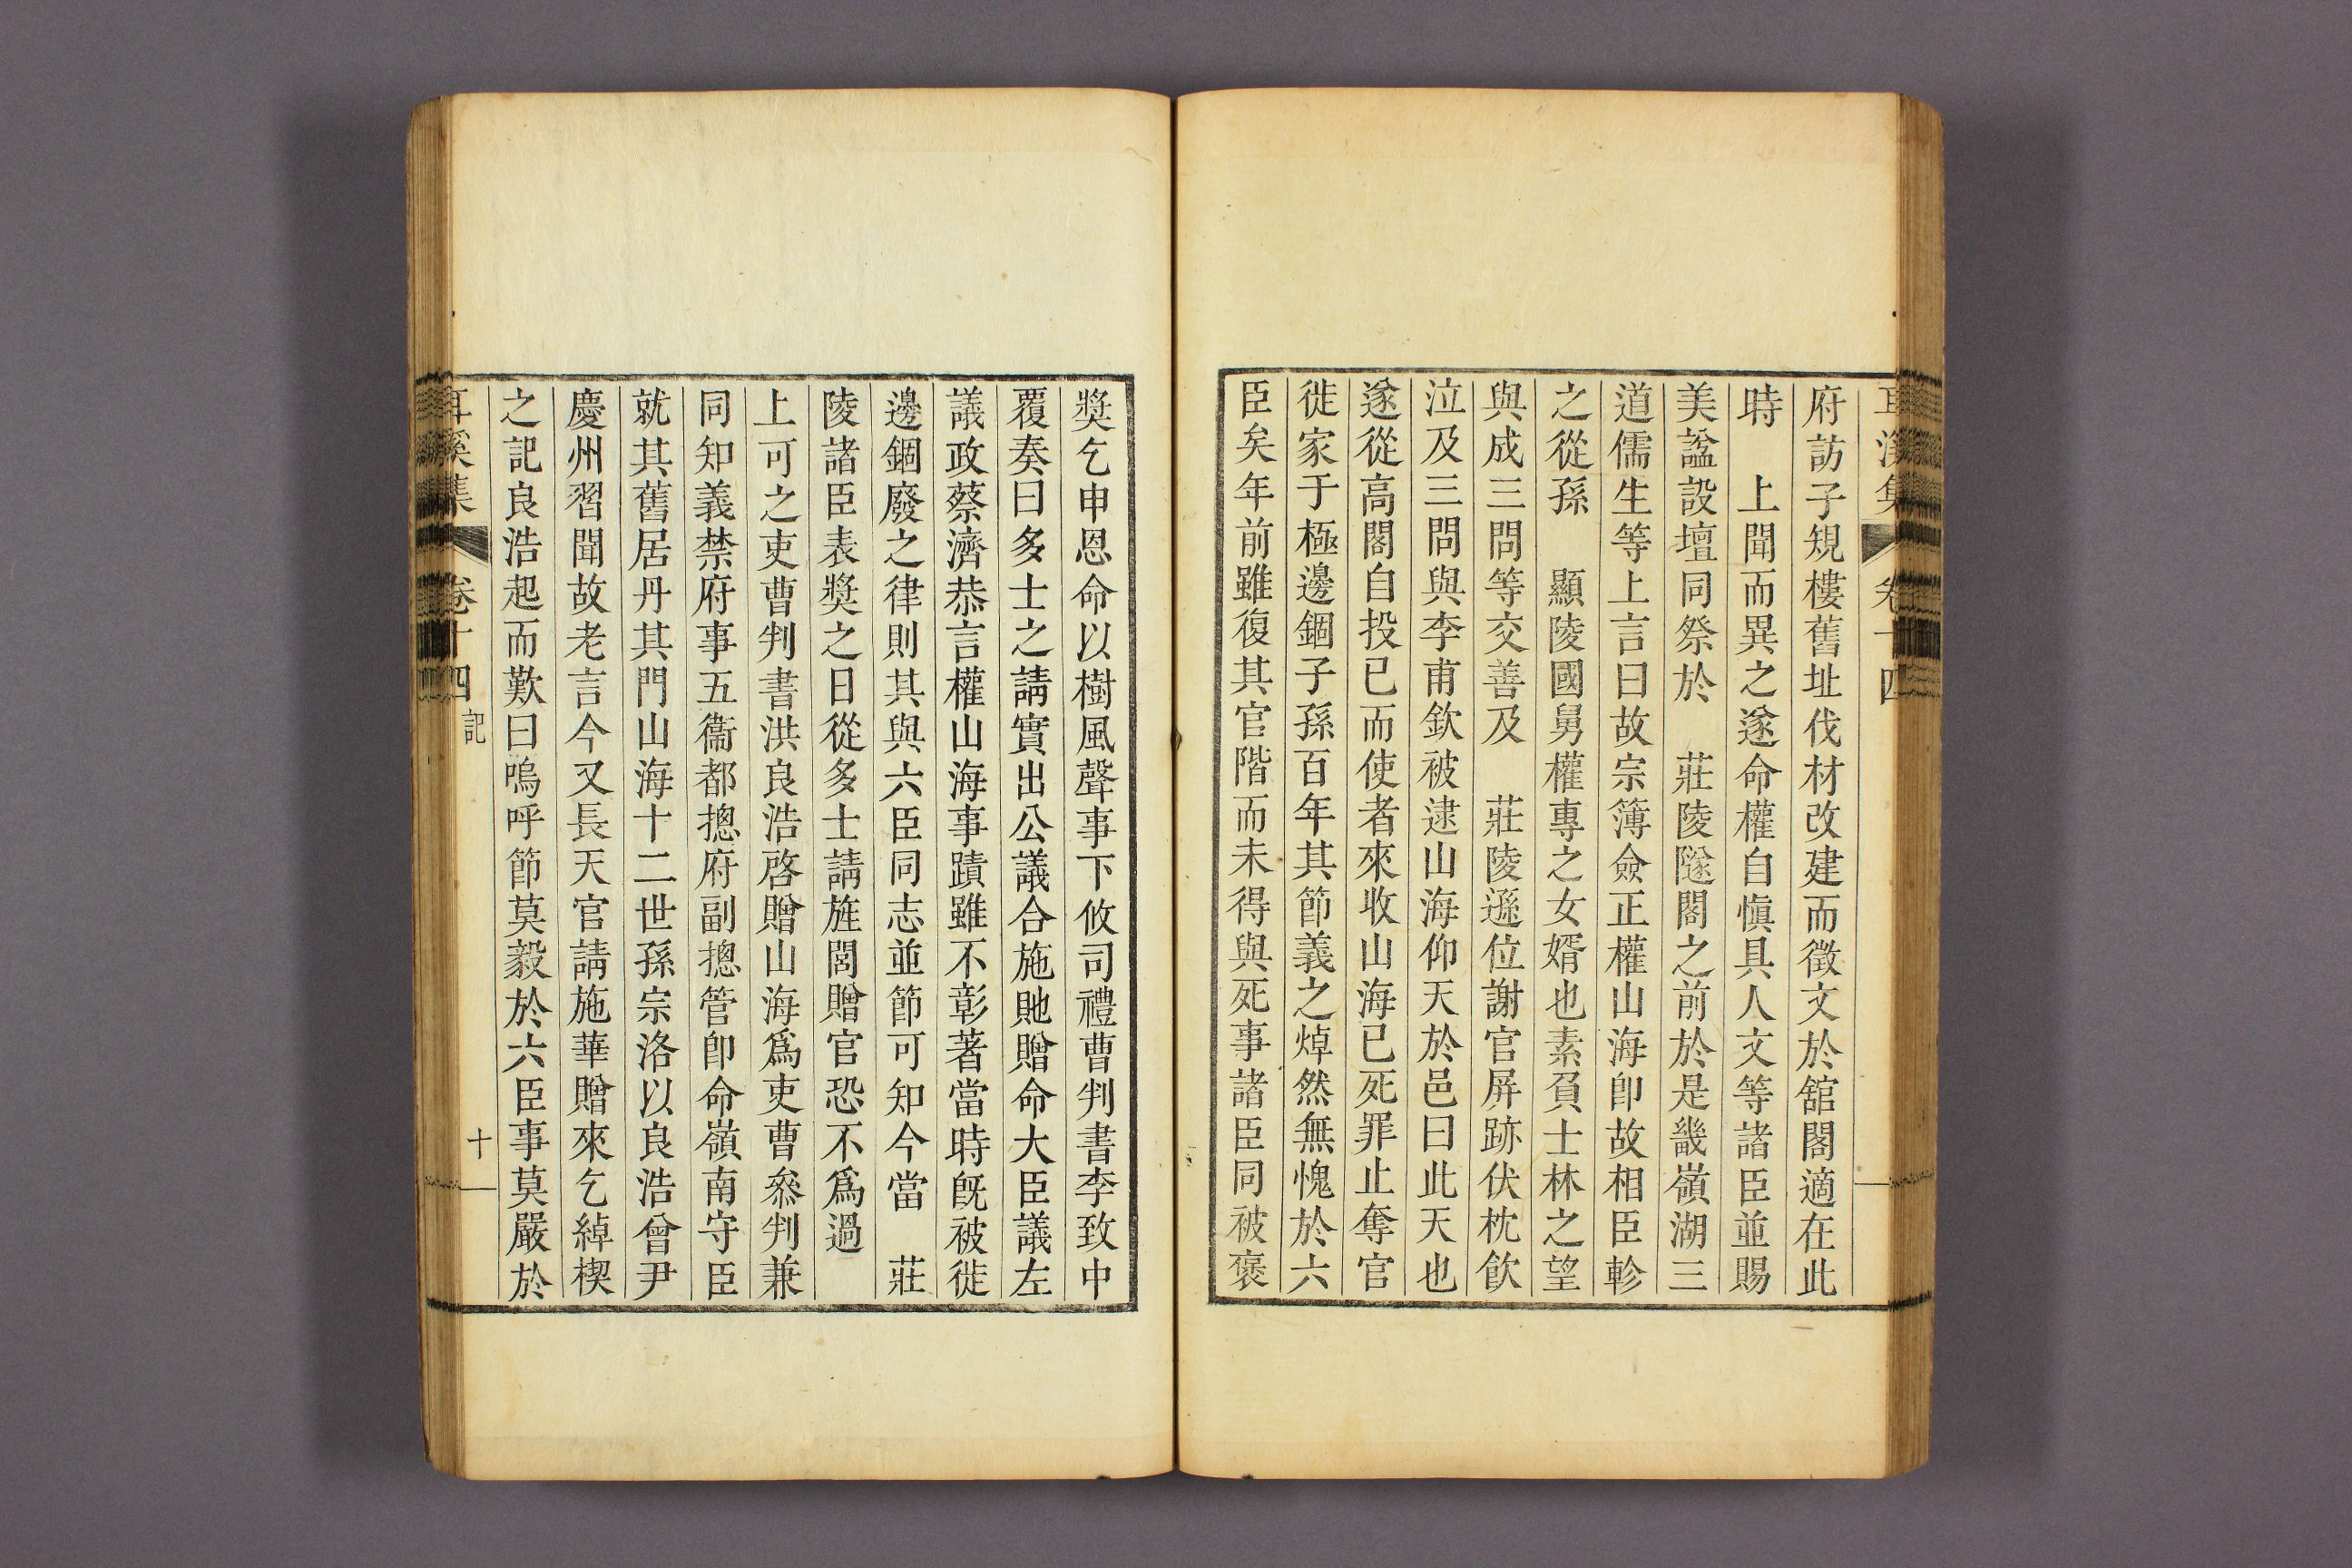 耳溪集 卷十四
府訪子規樓舊址伐材改建而徵文於舘閣適在此
時 上聞而異之遂命權自愼具人文等諸臣並賜
美諡設壇同祭於 莊陵隧閣之前於是畿嶺湖三
道儒生等上言曰故宗簿僉正權山海卽故相臣軫
之從孫 顯陵國舅權專之女婿也素負士林之望
與成三問等交善及 莊陵遜位謝官屛跡伏枕飮
泣及三問與李甫欽被逮山海仰天於邑曰此天也
遂從高閣自投已而使者來收山海已死罪止奪官
徙家于極邊錮子孫百年其節義之焯然無愧於六
臣矣年前雖復其官階而未得與死事諸臣同被褒
奬乞申恩命以樹風聲事下攸司禮曹判書李致中
覆奏曰多士之請實出公議合施貤贈命大臣議左
議政蔡濟恭言權山海事蹟雖不彰著當時旣被徙
邊錮廢之律則其與六臣同志並節可知今當 莊
陵諸臣表奬之日從多士請旌閭贈官恐不爲過
上可之吏曹判書洪良浩啓贈山海爲吏曹叅判兼
同知義禁府事五衞都摠府副摠管卽命嶺南守臣
就其舊居丹其門山海十二世孫宗洛以良浩曾尹
慶州習聞故老言今又長天官請施華贈來乞綽楔
之記良浩起而歎曰嗚呼節莫毅於六臣事莫嚴於
耳溪集 卷十四 記 十